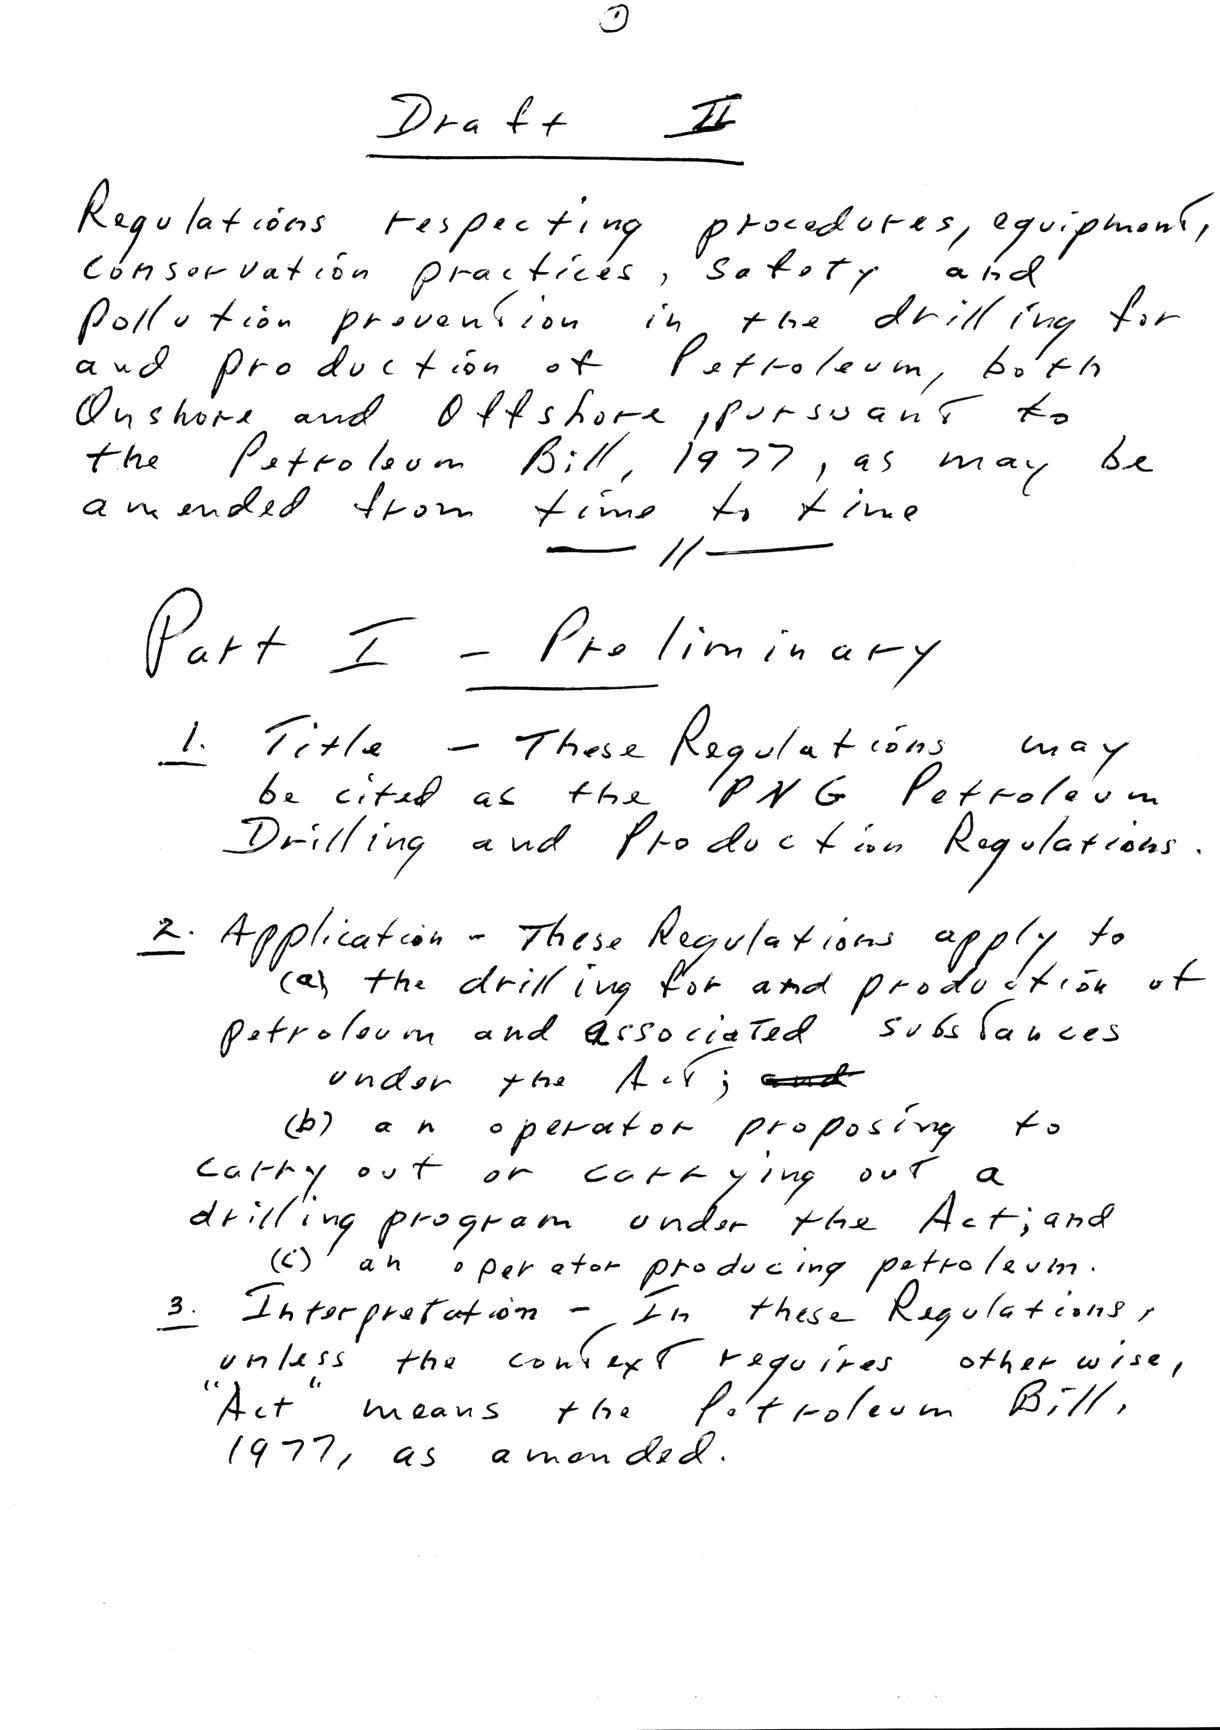 1
Draft II
Regulations respecting procedures, equipment,
conservation practices, safety and
pollution prevention in the drilling for
and production of Petroleum, both
Onshore and Offshore, pursuant to
the Petroleum Bill, 1977, as may be
amended from time to time
— // —
Part I - Preliminary
1. Title - These Regulations may
be cited as the PNG Petroleum
Drilling and Production Regulations.
2. Application - These Regulations apply to
(a) the drilling for and production of
petroleum and associated substances
under the Act; and
(b) an operator proposing to
carry out or carrying out a
drilling program under the Act; and
(c) an operator producing petroleum.
3. Interpretation - In these Regulations,
unless the context requires otherwise,
"Act" means the Petroleum Bill,
1977, as amended.